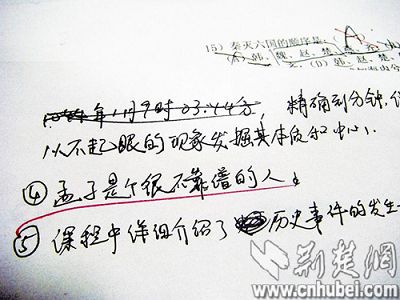 15）秦灭六国的顺序是（A
(A) 韩、魏、赵、楚、
(D) 韩、赵、楚、
年11月9时03:44分，精确到分钟，
从不起眼的现象发掘其本质和中心，
④ 孟子是个很不靠谱的人。
⑤ 课程中详细介绍了历史事件的发生
荆楚网
www.cnhubei.com